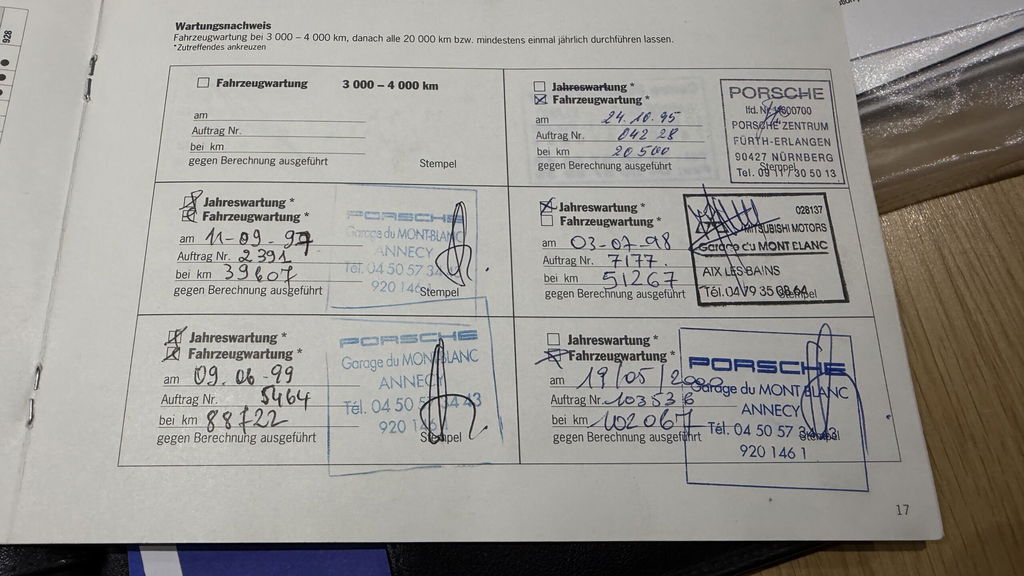 928
Wartungsnachweis
Fahrzeugwartung bei 3 000 – 4 000 km, danach alle 20 000 km bzw. mindestens einmal jährlich durchführen lassen.
*Zutreffendes ankreuzen
Fahrzeugwartung 3 000 – 4 000 km
am
Auftrag Nr.
bei km
gegen Berechnung ausgeführt Stempel
Jahreswartung *
Fahrzeugwartung *
am 24.10.95
Auftrag Nr. 042 28
bei km 20 500
gegen Berechnung ausgeführt Stempel
PORSCHE
lfd. Nr. 4600700
PORSCHE ZENTRUM
FÜRTH-ERLANGEN
90427 NÜRNBERG
Tel. 09 11 / 30 50 13
Jahreswartung *
Fahrzeugwartung *
am 11-09-97
Auftrag Nr. 2391
bei km 39607
gegen Berechnung ausgeführt Stempel
PORSCHE
Garage du MONT-BLANC
ANNECY
Tél. 04 50 57 34
920 146 1
Jahreswartung *
Fahrzeugwartung *
am 03-07-98
Auftrag Nr. 7177.
bei km 51267
gegen Berechnung ausgeführt Stempel
028137
MITSUBISHI MOTORS
Garage du MONT BLANC
AIX LES BAINS
Tél. 04 79 35 08 64
Jahreswartung *
Fahrzeugwartung *
am 09.06-99
Auftrag Nr. 5464
bei km 88722
gegen Berechnung ausgeführt Stempel
PORSCHE
Garage du MONT BLANC
ANNECY
Tél. 04 50 5 34 43
920 146
Jahreswartung *
Fahrzeugwartung *
am 19/05/2000
Auftrag Nr. 103536
bei km 102067
gegen Berechnung ausgeführt Stempel
PORSCHE
Garage du MONT BLANC
ANNECY
Tél. 04 50 57 34 43
920 146 1
17